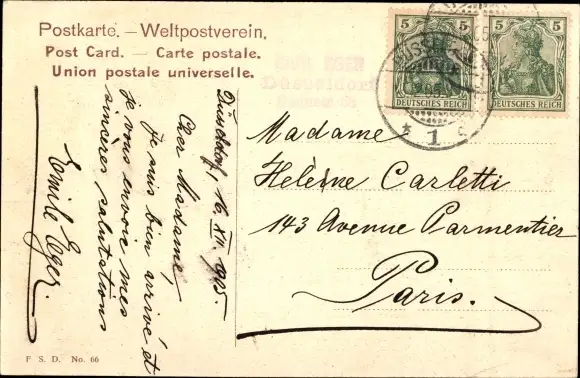 Postkarte. – Weltpostverein.
Post Card. – Carte postale.
Union postale universelle.
EMIL EGER
Düsseldorf
5
5
5
5
DEUTSCHES REICH
DEUTSCHES REICH
* 1 c
Düsseldorf, 16. XII. 1905
Cher Madame,
Je suis bien arrivé et
je vous envoie mes
sincères salutations
Emile Eger.
Madame
Helène Carletti
143 Avenue Parmentier
Paris.
F S. D. No. 66